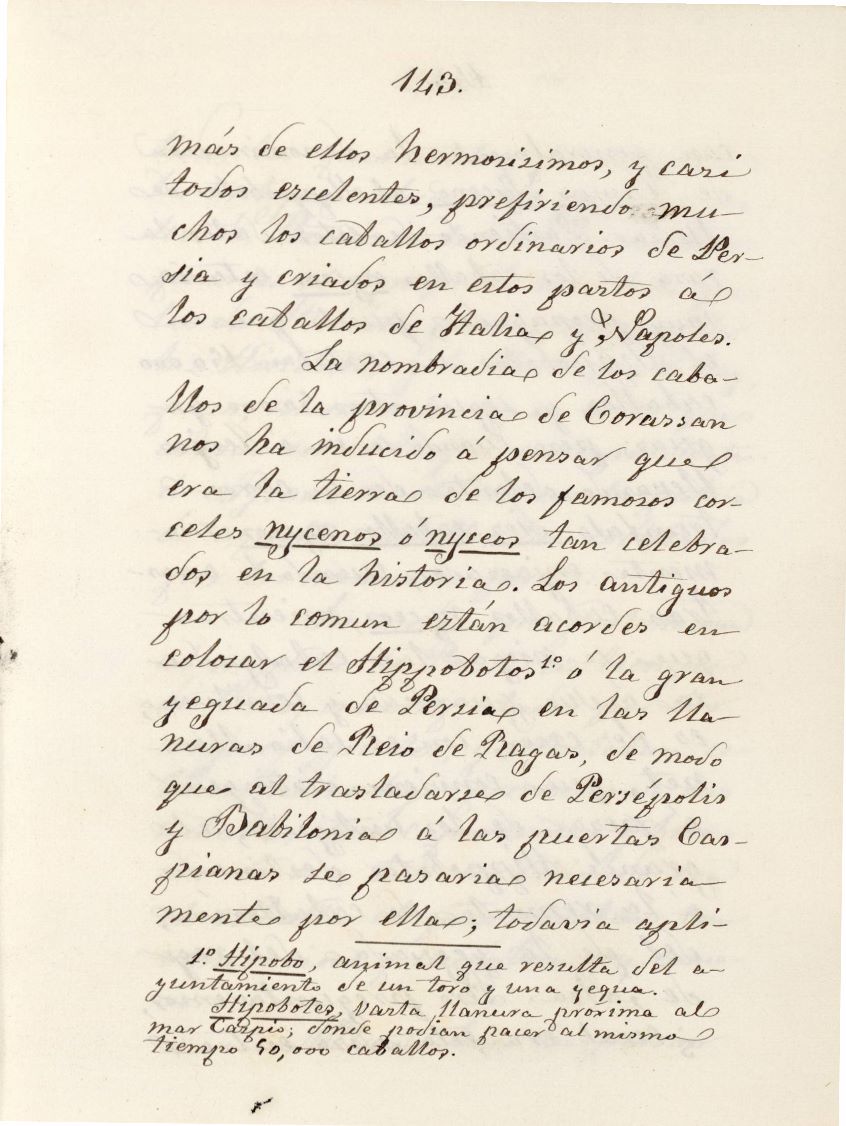 143.
más de ellos hermosisimos, y casi
todos escelentes, prefiriendo mu-
chos los caballos ordinarios de Per-
sia y criados en estos partos á
los caballos de Italia y Napoles.
La nombradia de los caba-
llos de la provincia de Corassan
nos ha inducido á pensar que
era la tierra de los famosos cor-
celes nycenos ó nyceos tan celebra-
dos en la historia. Los antiguos
por lo comun están acordes en
colocar el Hippobotos 1.º ó la gran
yeguada de Persia en las lla-
nuras de Reio de Ragas, de modo
que al trasladarse de Persépolis
y Babilonia á las puertas Cas-
pianas se pasaria necesaria
mente por ella; todavia apli-
1.º Hipobo, animal que resulta del a-
yuntamiento de un toro y una yegua.
Hipobotes, vasta llanura próxima al
mar Caspio; donde podian pacer al mismo
tiempo 50,000 caballos.